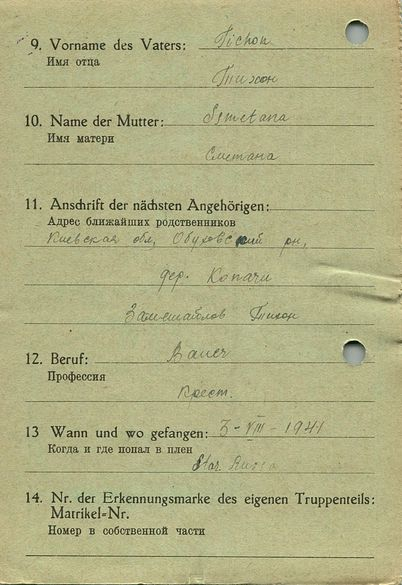 9. Vorname des Vaters: Tichon
Имя отца
Тихон
10. Name der Mutter: Smetana
Имя матери
Сметана
11. Anschrift der nächsten Angehörigen:
Адрес ближайших родственников
Киевская обл, Обуховский рн,
дер. Копачи
Тихон
12. Beruf: Bauer
Профессия
крест.
13 Wann und wo gefangen: 3-VIII-1941
Когда и где попал в плен
Star. Russa
14. Nr. der Erkennungsmarke des eigenen Truppenteils:
Matrikel-Nr.
Номер в собственной части